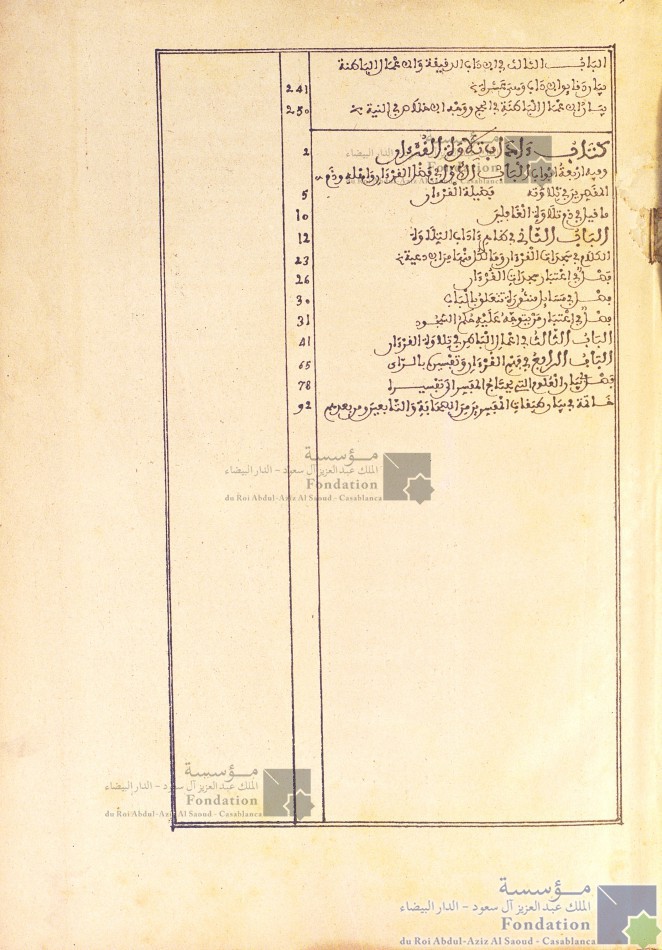 الباب الثالث في الاداب الدقيقة والاعمال الباطنة
بيان دقائق الاداب وهي عشرة 241
بيان الاعمال الباطنة في الحج ووجه الاخلاص في النية 250
كتاب ءاداب تلاوة القرءان 2
وفيه اربعة ابواب الباب الاول في فضل القرءان واهله وذم
المقصرين في تلاوته فضيلة القرءان 5
ما قيل في ذم تلاوة الغافلين 10
الباب الثاني في ظاهر ءاداب التلاوة 12
الكلام في سجدات القرءان وما لكل منها من الادعية 23
فصل في اعتبار سجدات القرءان 26
فصل في مسايل منثورة تتعلق بالباب 30
فصل في اعتبار من يتوجه عليه حكم السجود 31
الباب الثالث في اعمال الباطن في تلاوة القرءان 41
الباب الرابع في فهم القرءان وتفسيره بالراى 65
فصل في بيان العلوم التي يحتاج المفسر الى تفسير 78
خاتمة في بيان طبقات المفسرين من الصحابة والتابعين ومن بعدهم 92
مؤسسة
الملك عبد العزيز آل سعود - الدار البيضاء
Fondation
du Roi Abdul-Aziz Al Saoud - Casablanca
مؤسسة
الملك عبد العزيز آل سعود - الدار البيضاء
Fondation
du Roi Abdul-Aziz Al Saoud - Casablanca
مؤسسة
الملك عبد العزيز آل سعود - الدار البيضاء
Fondation
du Roi Abdul-Aziz Al Saoud - Casablanca